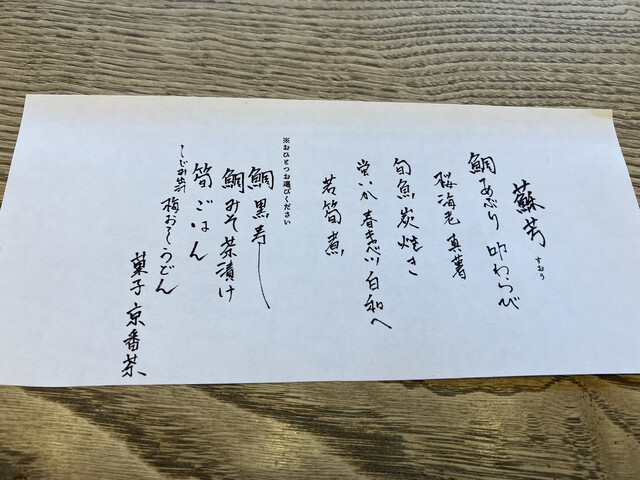 蘇芳
すおう
鯛あぶり 叩わらび
桜海老真薯
旬魚炭焼き
蛍いか 春キャベツ 白和へ
若筍煮
※おひとつお選びください
鯛黒寿し
鯛みそ茶漬け
筍ごはん
しじみ出汁 梅おろしうどん
菓子 京番茶